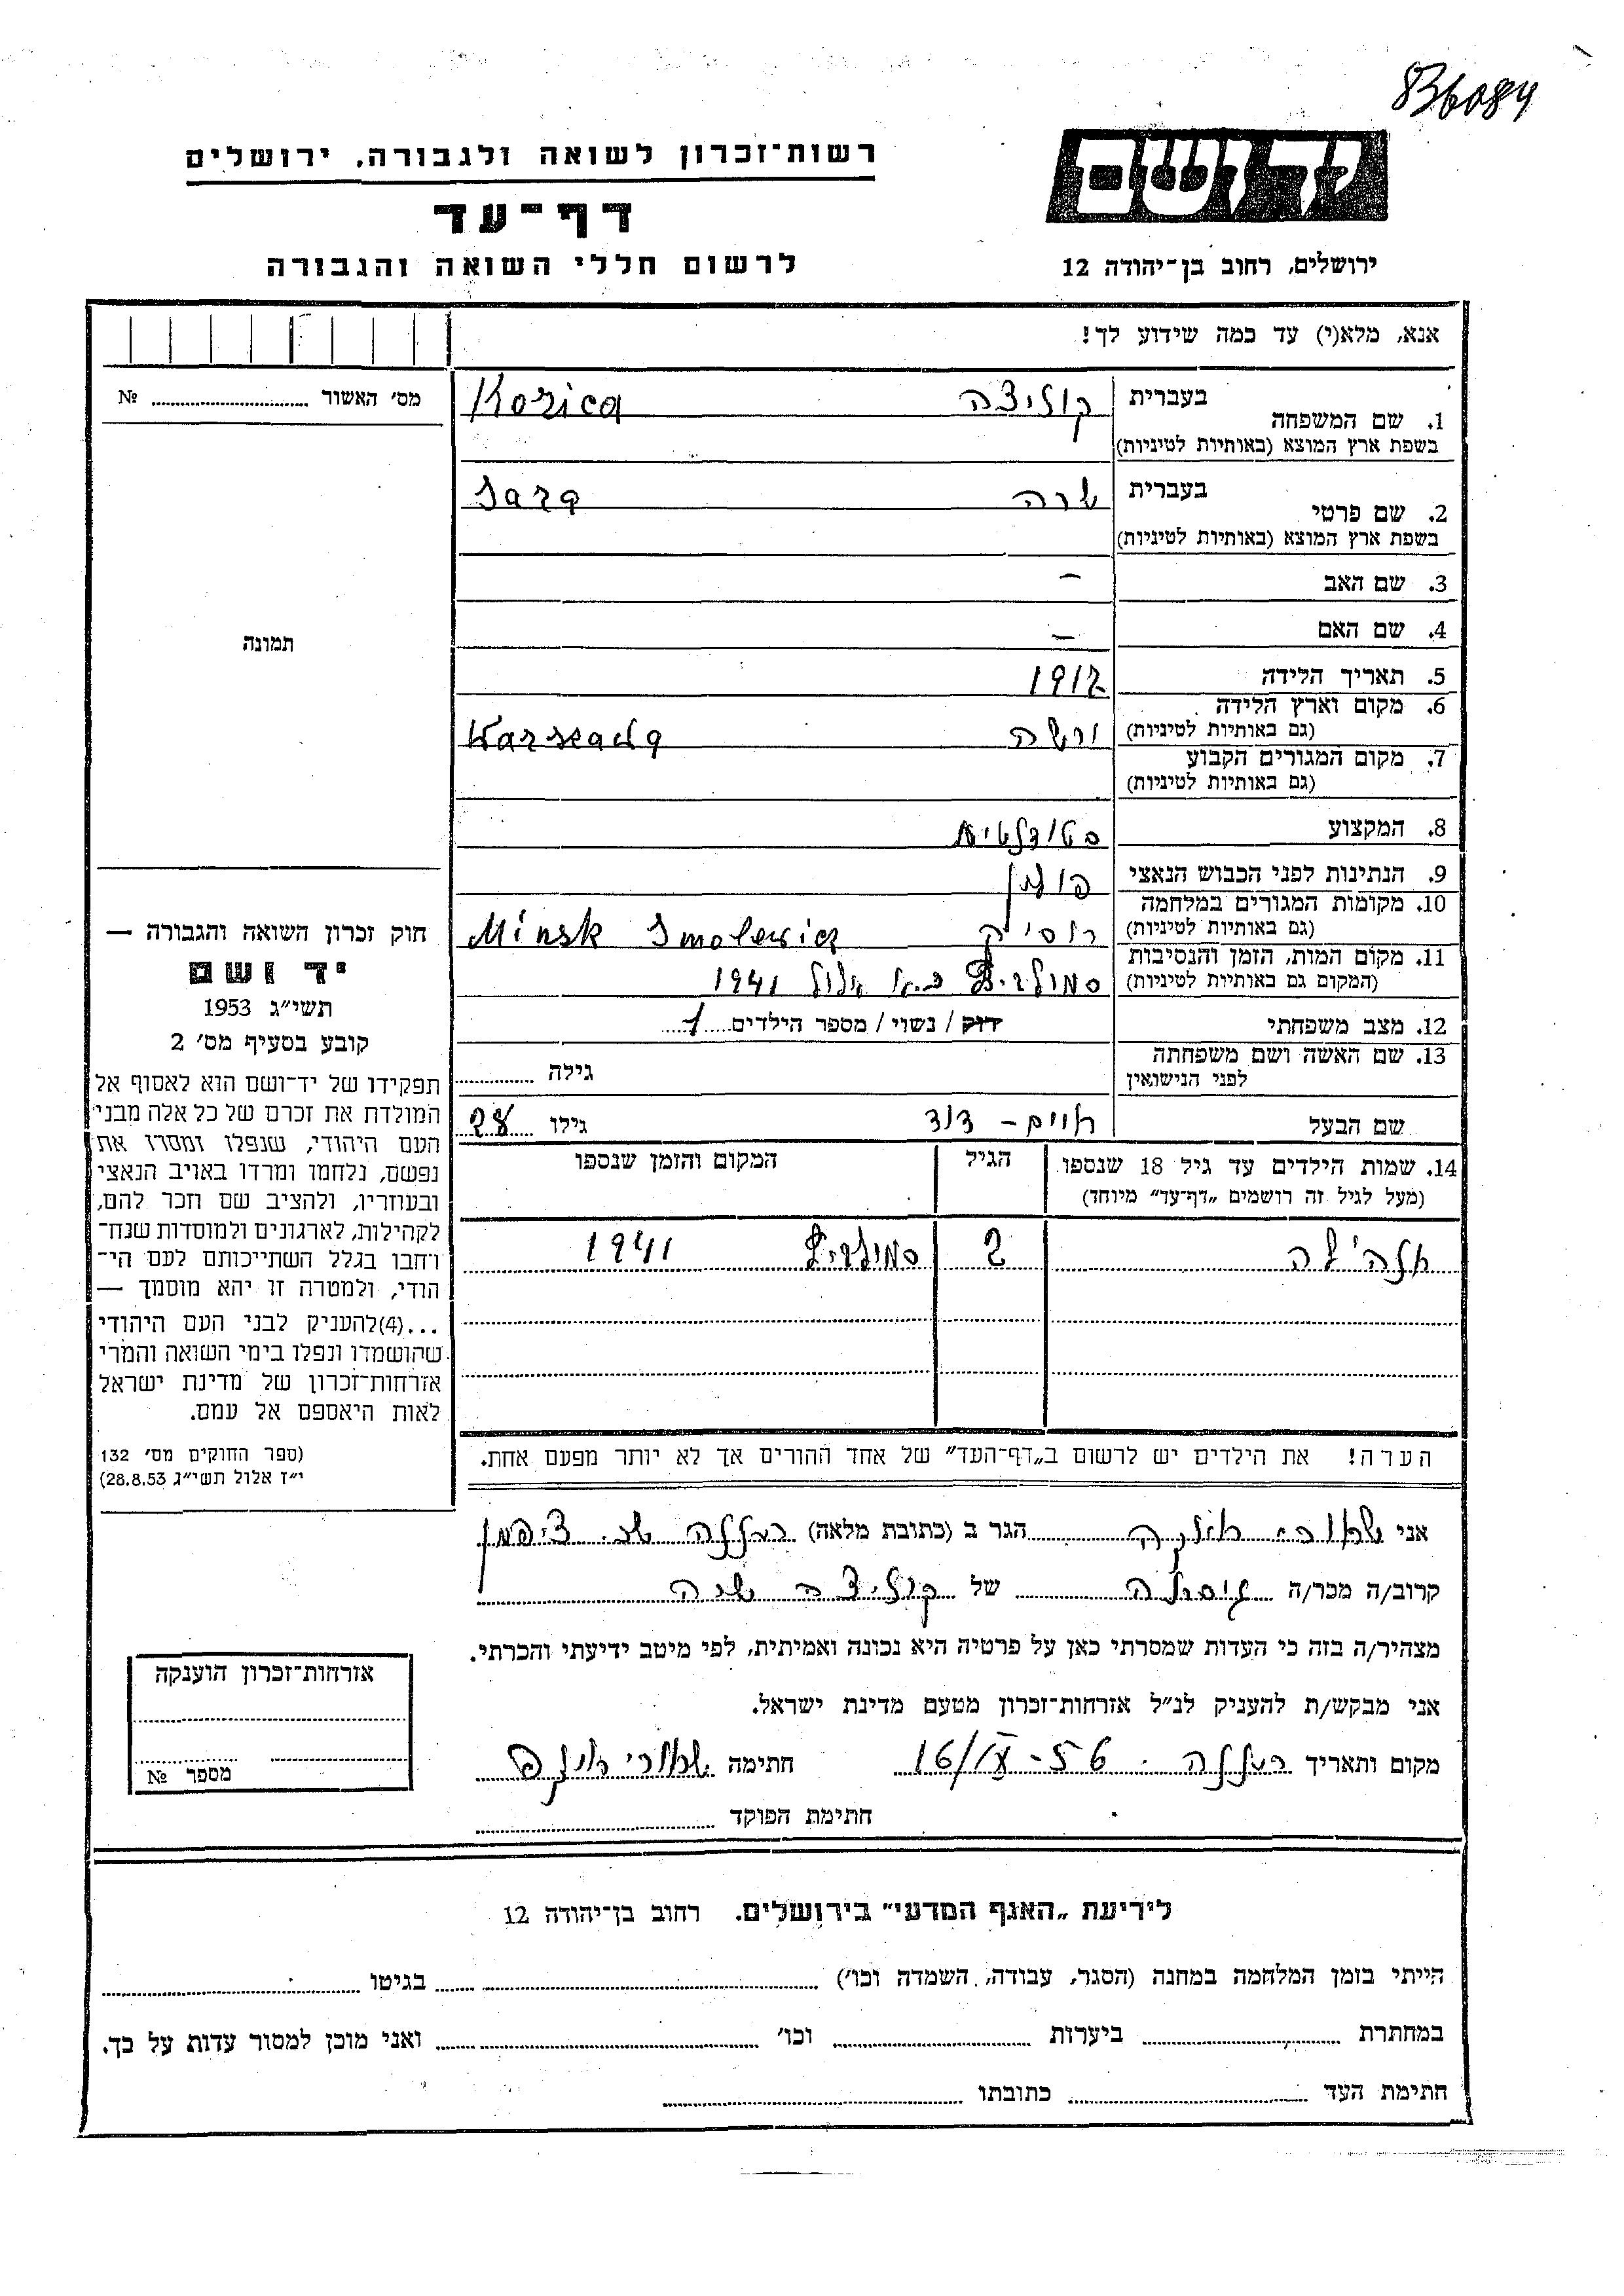 836084
יד ושם
רשות־זכרון לשואה ולגבורה, ירושלים
דף־עד
לרשום חללי השואה והגבורה
ירושלים, רחוב בן־יהודה 12
אנא, מלא(י) עד כמה שידוע לך!
1. שם המשפחה בעברית קוז׳יצה Korica
בשפת ארץ המוצא (באותיות לטיניות)
2. שם פרטי בעברית שרה Sara
בשפת ארץ המוצא (באותיות לטיניות)
3. שם האב –
4. שם האם –
5. תאריך הלידה 1912
6. מקום וארץ הלידה
(גם באותיות לטיניות) ורשה
7. מקום המגורים הקבוע
(גם באותיות לטיניות)
8. המקצוע
9. הנתינות לפני הכבוש הנאצי פולין
10. מקומות המגורים במלחמה
(גם באותיות לטיניות) רוסיה Minsk Smolewicz
11. מקום המות, הזמן והנסיבות
(המקום גם באותיות לטיניות) אלול 1941
12. מצב משפחתי רוק / נשוי / מספר הילדים 1
13. שם האשה ושם משפחתה
לפני הנישואין גילה
שם הבעל חיים – דוד גילו 28
14. שמות הילדים עד גיל 18 שנספו הגיל המקום והזמן שנספו
(מעל לגיל זה רושמים „דף־עד” מיוחד)
2 1941
הערה! את הילדים יש לרשום ב„דף־העד” של אחד ההורים אך לא יותר מפעם אחת.
אני הגר ב (כתובת מלאה) רמלה שכ.
קרוב/ה מכר/ה גיסתה של שרה
מצהיר/ה בזה כי העדות שמסרתי כאן על פרטיה היא נכונה ואמיתית, לפי מיטב ידיעתי והכרתי.
אני מבקש/ת להעניק לנ״ל אזרחות־זכרון מטעם מדינת ישראל.
מקום ותאריך רמלה חתימה
חתימת הפוקד
מס׳ האשור №
תמונה
חוק זכרון השואה והגבורה —
יד ושם
תשי״ג 1953
קובע בסעיף מס׳ 2
תפקידו של יד־ושם הוא לאסוף אל
המולדת את זכרם של כל אלה מבני
העם היהודי, שנפלו ומסרו את
נפשם, נלחמו ומרדו באויב הנאצי
ובעוזריו, ולהציב שם וזכר להם,
לקהילות, לארגונים ולמוסדות שנח־
רבו בגלל השתייכותם לעם הי־
הודי, ולמטרה זו יהא מוסמך —
...(4)להעניק לבני העם היהודי
שהושמדו ונפלו בימי השואה והמרי
אזרחות־זכרון של מדינת ישראל
לאות היאספם אל עמם.
(ספר החוקים מס׳ 132
י״ז אלול תשי״ג 28.8.53)
אזרחות־זכרון הוענקה
מספר №
לידיעת „האגף המדעי” בירושלים. רחוב בן־יהודה 12
הייתי בזמן המלחמה במחנה (הסגר, עבודה, השמדה וכו׳) בגיטו
במחתרת ביערות וכו׳ ואני מוכן למסור עדות על כך.
חתימת העד כתובתו